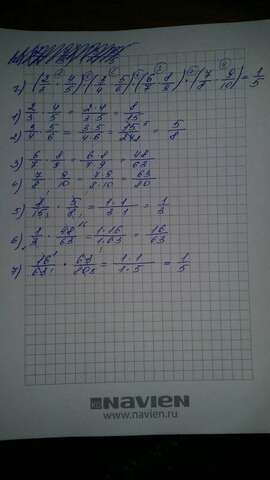 2) (2/3 · 4/5) · (3/4 · 5/6) · (6/7 · 8/9) · (7/8 · 9/10) = 1/5
1) 2/3 · 4/5 = 2·4/3·5 = 8/15
2) 3/4 · 5/6 = 3·5/4·6 = 15/24 = 5/8
3) 6/7 · 8/9 = 6·8/7·9 = 48/63
4) 7/8 · 9/10 = 7·9/8·10 = 63/80
5) 8/15 · 5/8 = 1·1/3·1 = 1/3
6) 1/3 · 48/63 = 1·16/1·63 = 16/63
7) 16/63 · 63/80 = 1·1/1·5 = 1/5
NAVIEN
www.navien.ru